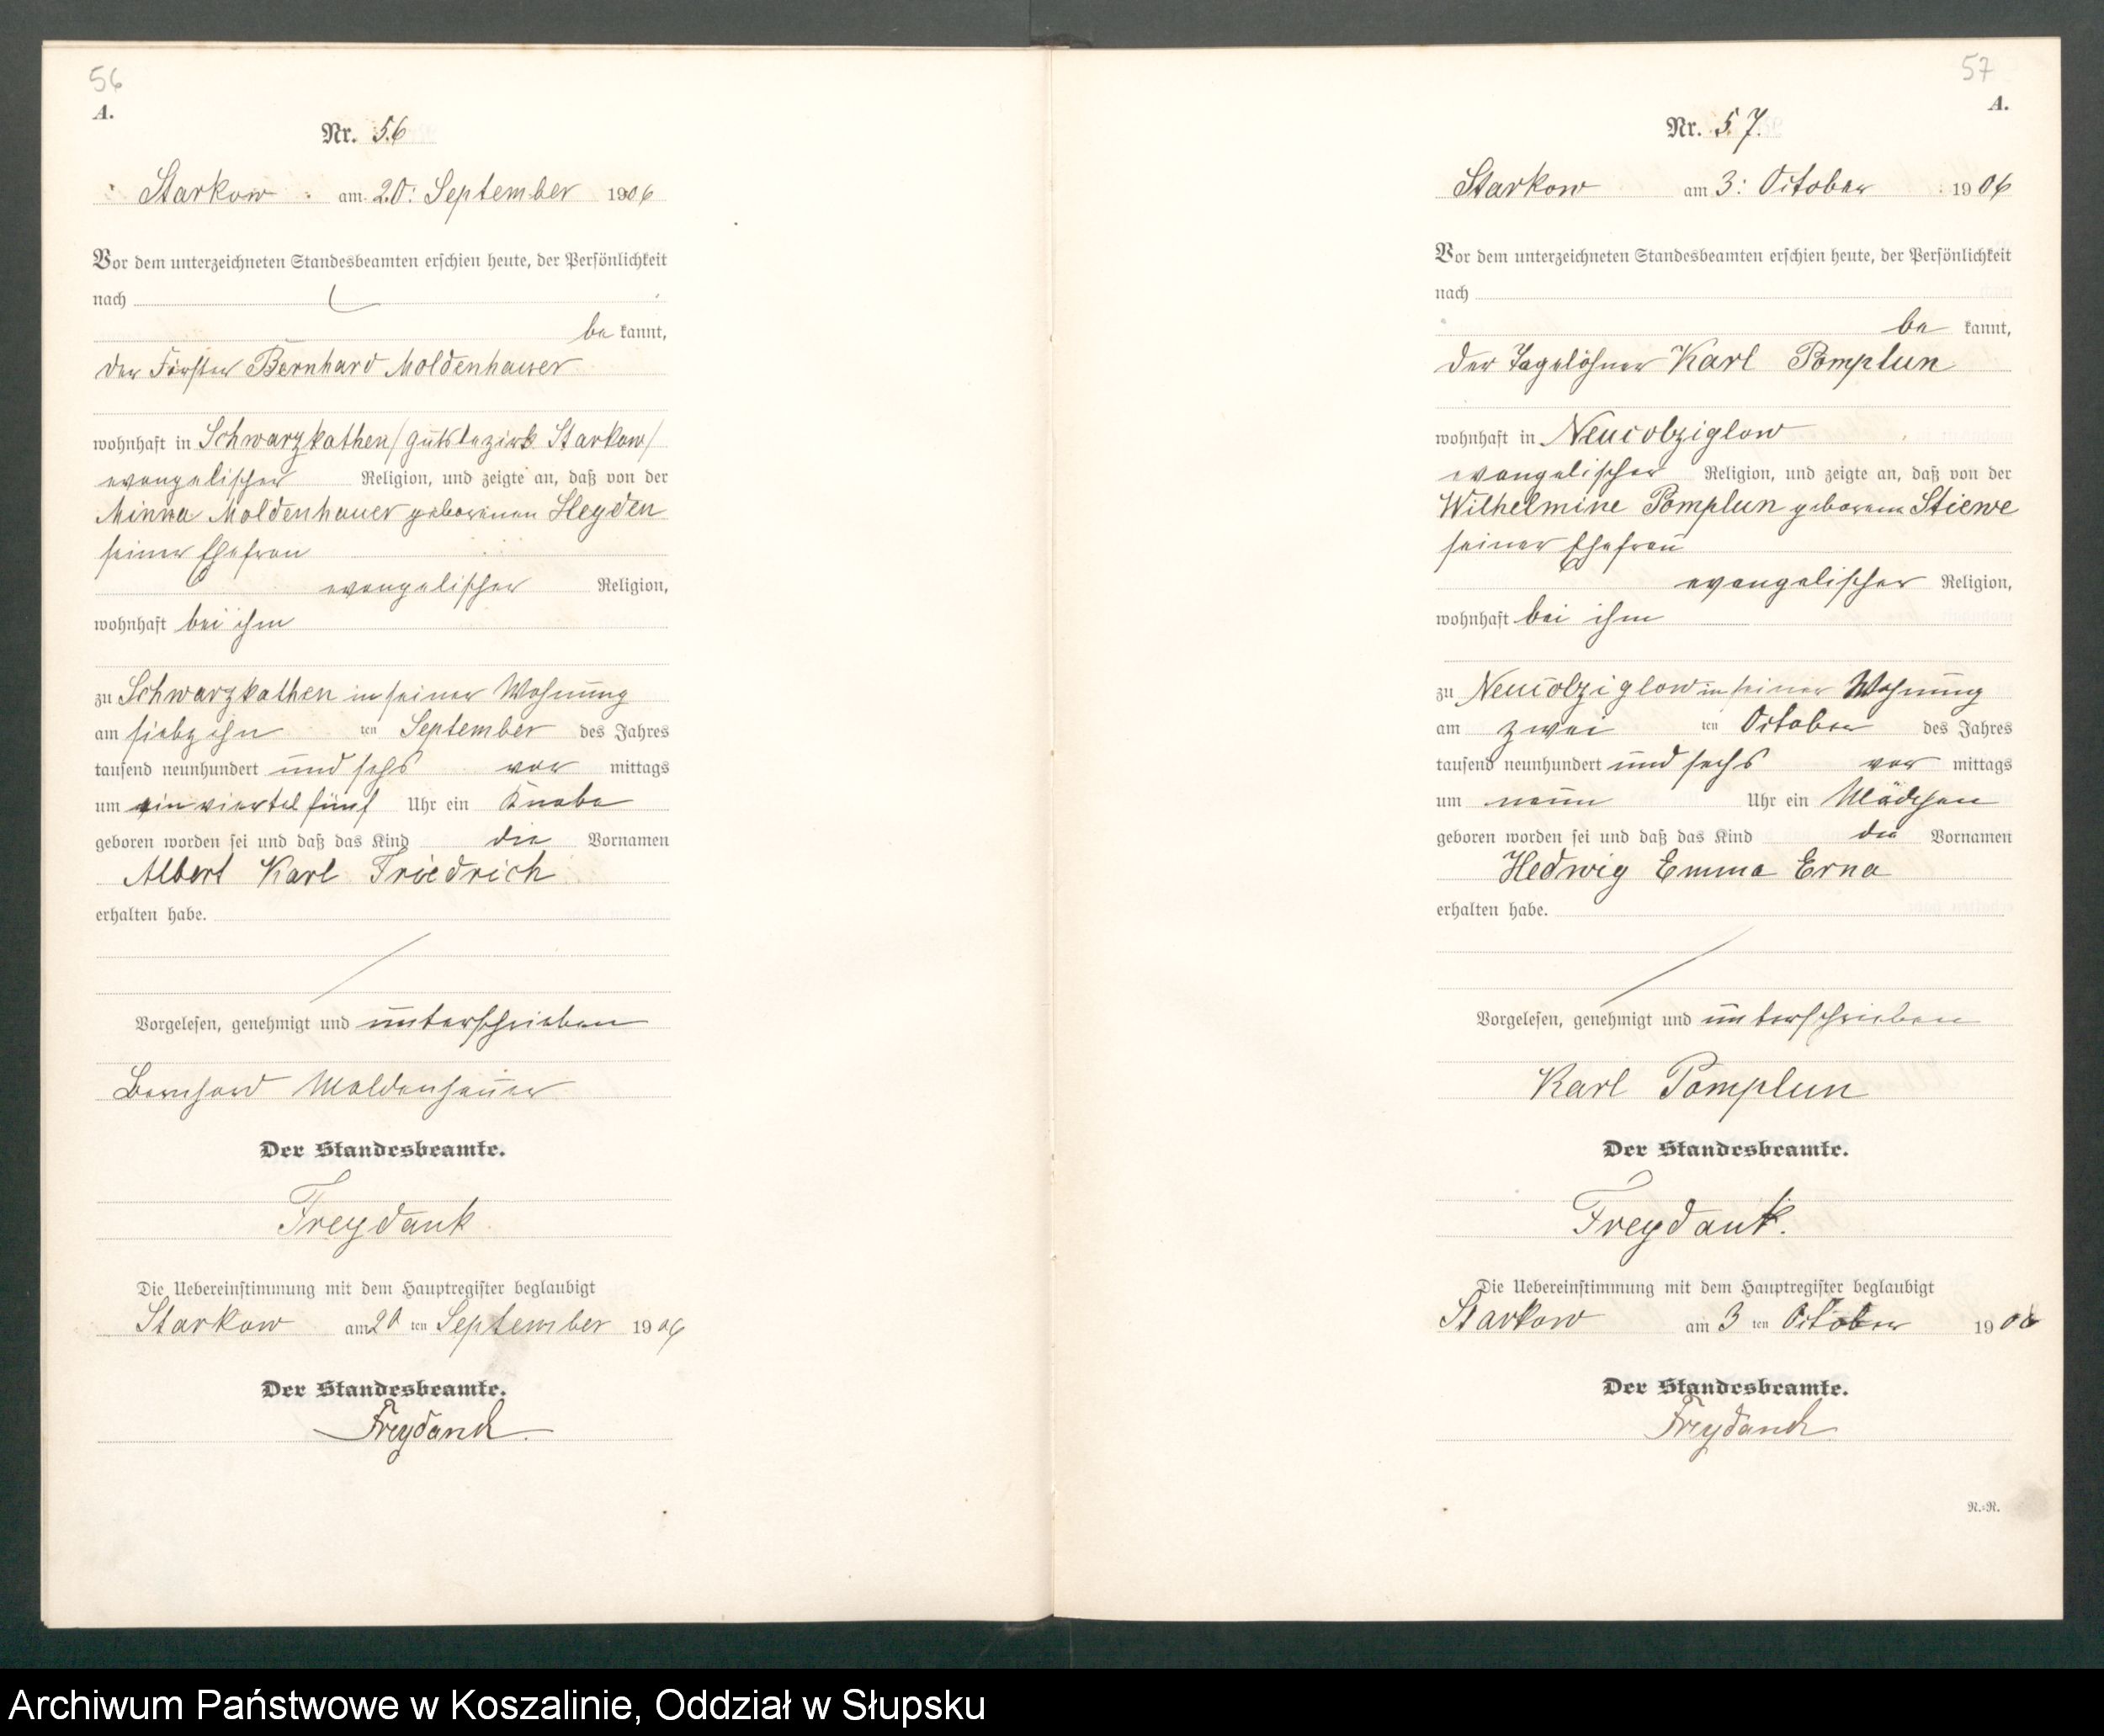 56
A.
Nr. 56
Starkow am 20: September 1906
Vor dem unterzeichneten Standesbeamten erschien heute, der Persönlichkeit
nach
be kannt,
der Förster Bernhard Moldenhauer
wohnhaft in Schwarzkathen /Gutsbezirk Starkow/
evangelischer Religion, und zeigte an, daß von der
Minna Moldenhauer geborenen Heyden
seiner Ehefrau
evangelischer Religion,
wohnhaft bei ihm
zu Schwarzkathen in seiner Wohnung
am siebzehn ten September des Jahres
tausend neunhundert und sechs vor mittags
um ein viertel fünf Uhr ein Knabe
geboren worden sei und daß das Kind die Vornamen
Albert Karl Friedrich
erhalten habe.
Vorgelesen, genehmigt und unterschrieben
Bernhard Moldenhauer
Der Standesbeamte.
Freydank
Die Uebereinstimmung mit dem Hauptregister beglaubigt
Starkow am 20 ten September 1906
Der Standesbeamte.
Freydanck.
57
A.
Nr. 57.
Starkow am 3: October 1906
Vor dem unterzeichneten Standesbeamten erschien heute, der Persönlichkeit
nach
be kannt,
der Tagelöhner Karl Pomplun
wohnhaft in Neucolziglow
evangelischer Religion, und zeigte an, daß von der
Wilhelmine Pomplun geborene Stiewe
seiner Ehefrau
evangelischer Religion,
wohnhaft bei ihm
zu Neucolziglow in seiner Wohnung
am zwei ten October des Jahres
tausend neunhundert und sechs vor mittags
um neun Uhr ein Mädchen
geboren worden sei und daß das Kind die Vornamen
Hedwig Emma Erna
erhalten habe.
Vorgelesen, genehmigt und unterschrieben
Karl Pomplun
Der Standesbeamte.
Freydank.
Die Uebereinstimmung mit dem Hauptregister beglaubigt
Starkow am 3 ten October 1906
Der Standesbeamte.
Freydanck
N.=R.
Archiwum Państwowe w Koszalinie, Oddział w Słupsku